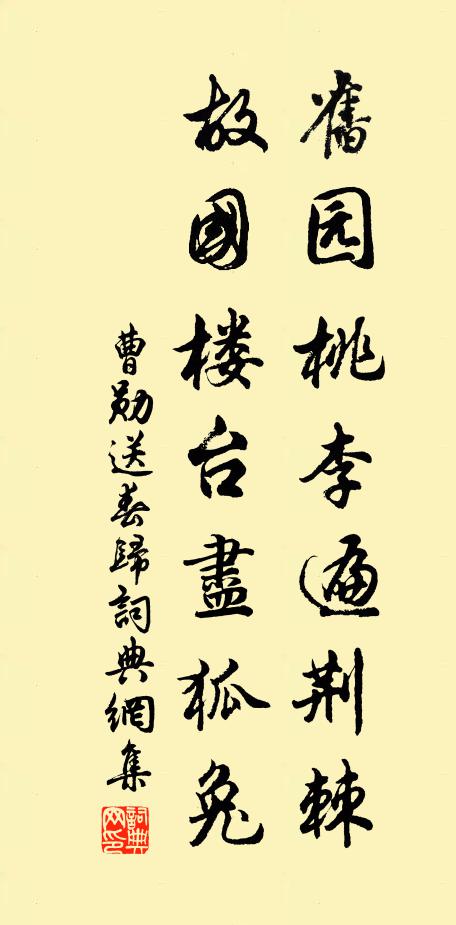 舊园桃李遍荆棘
故國楼台盡狐兔
曹勋送春歸詞典網集
詞典网印